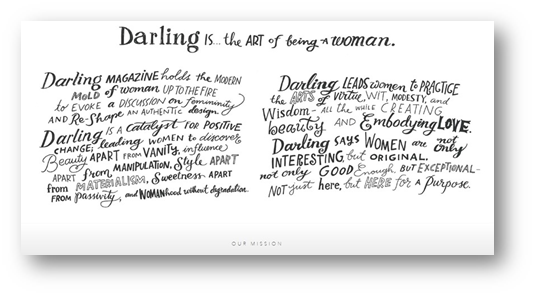 Darling IS... the ART of being A woman.
Darling MAGAZINE holds the MODERN
MOLD of woman UP TO THE FIRE
to EVOKE a DISCUSSION on femininity
AND Re-Shape AN AUTHENTIC design.
Darling IS A catalyst FOR POSITIVE
CHANGE, leading WOMEN to discover
Beauty APART FROM VANITY, influence
APART from MANIPULATION, Style APART
from MATERIALISM, Sweetness APART
FROM passivity, and WOMANhood without degradation.
Darling LEADS women to PRACTICE
the ARTS of virtue, WIT, MODESTY, and
Wisdom - ALL the WHILE CREATING
beauty AND Embodying LOVE.
Darling SAYS WOMEN are not only
INTERESTING, but ORIGINAL.
not only GOOD Enough, BUT EXCEPTIONAL-
NOT just here, but HERE for a Purpose.
OUR MISSION